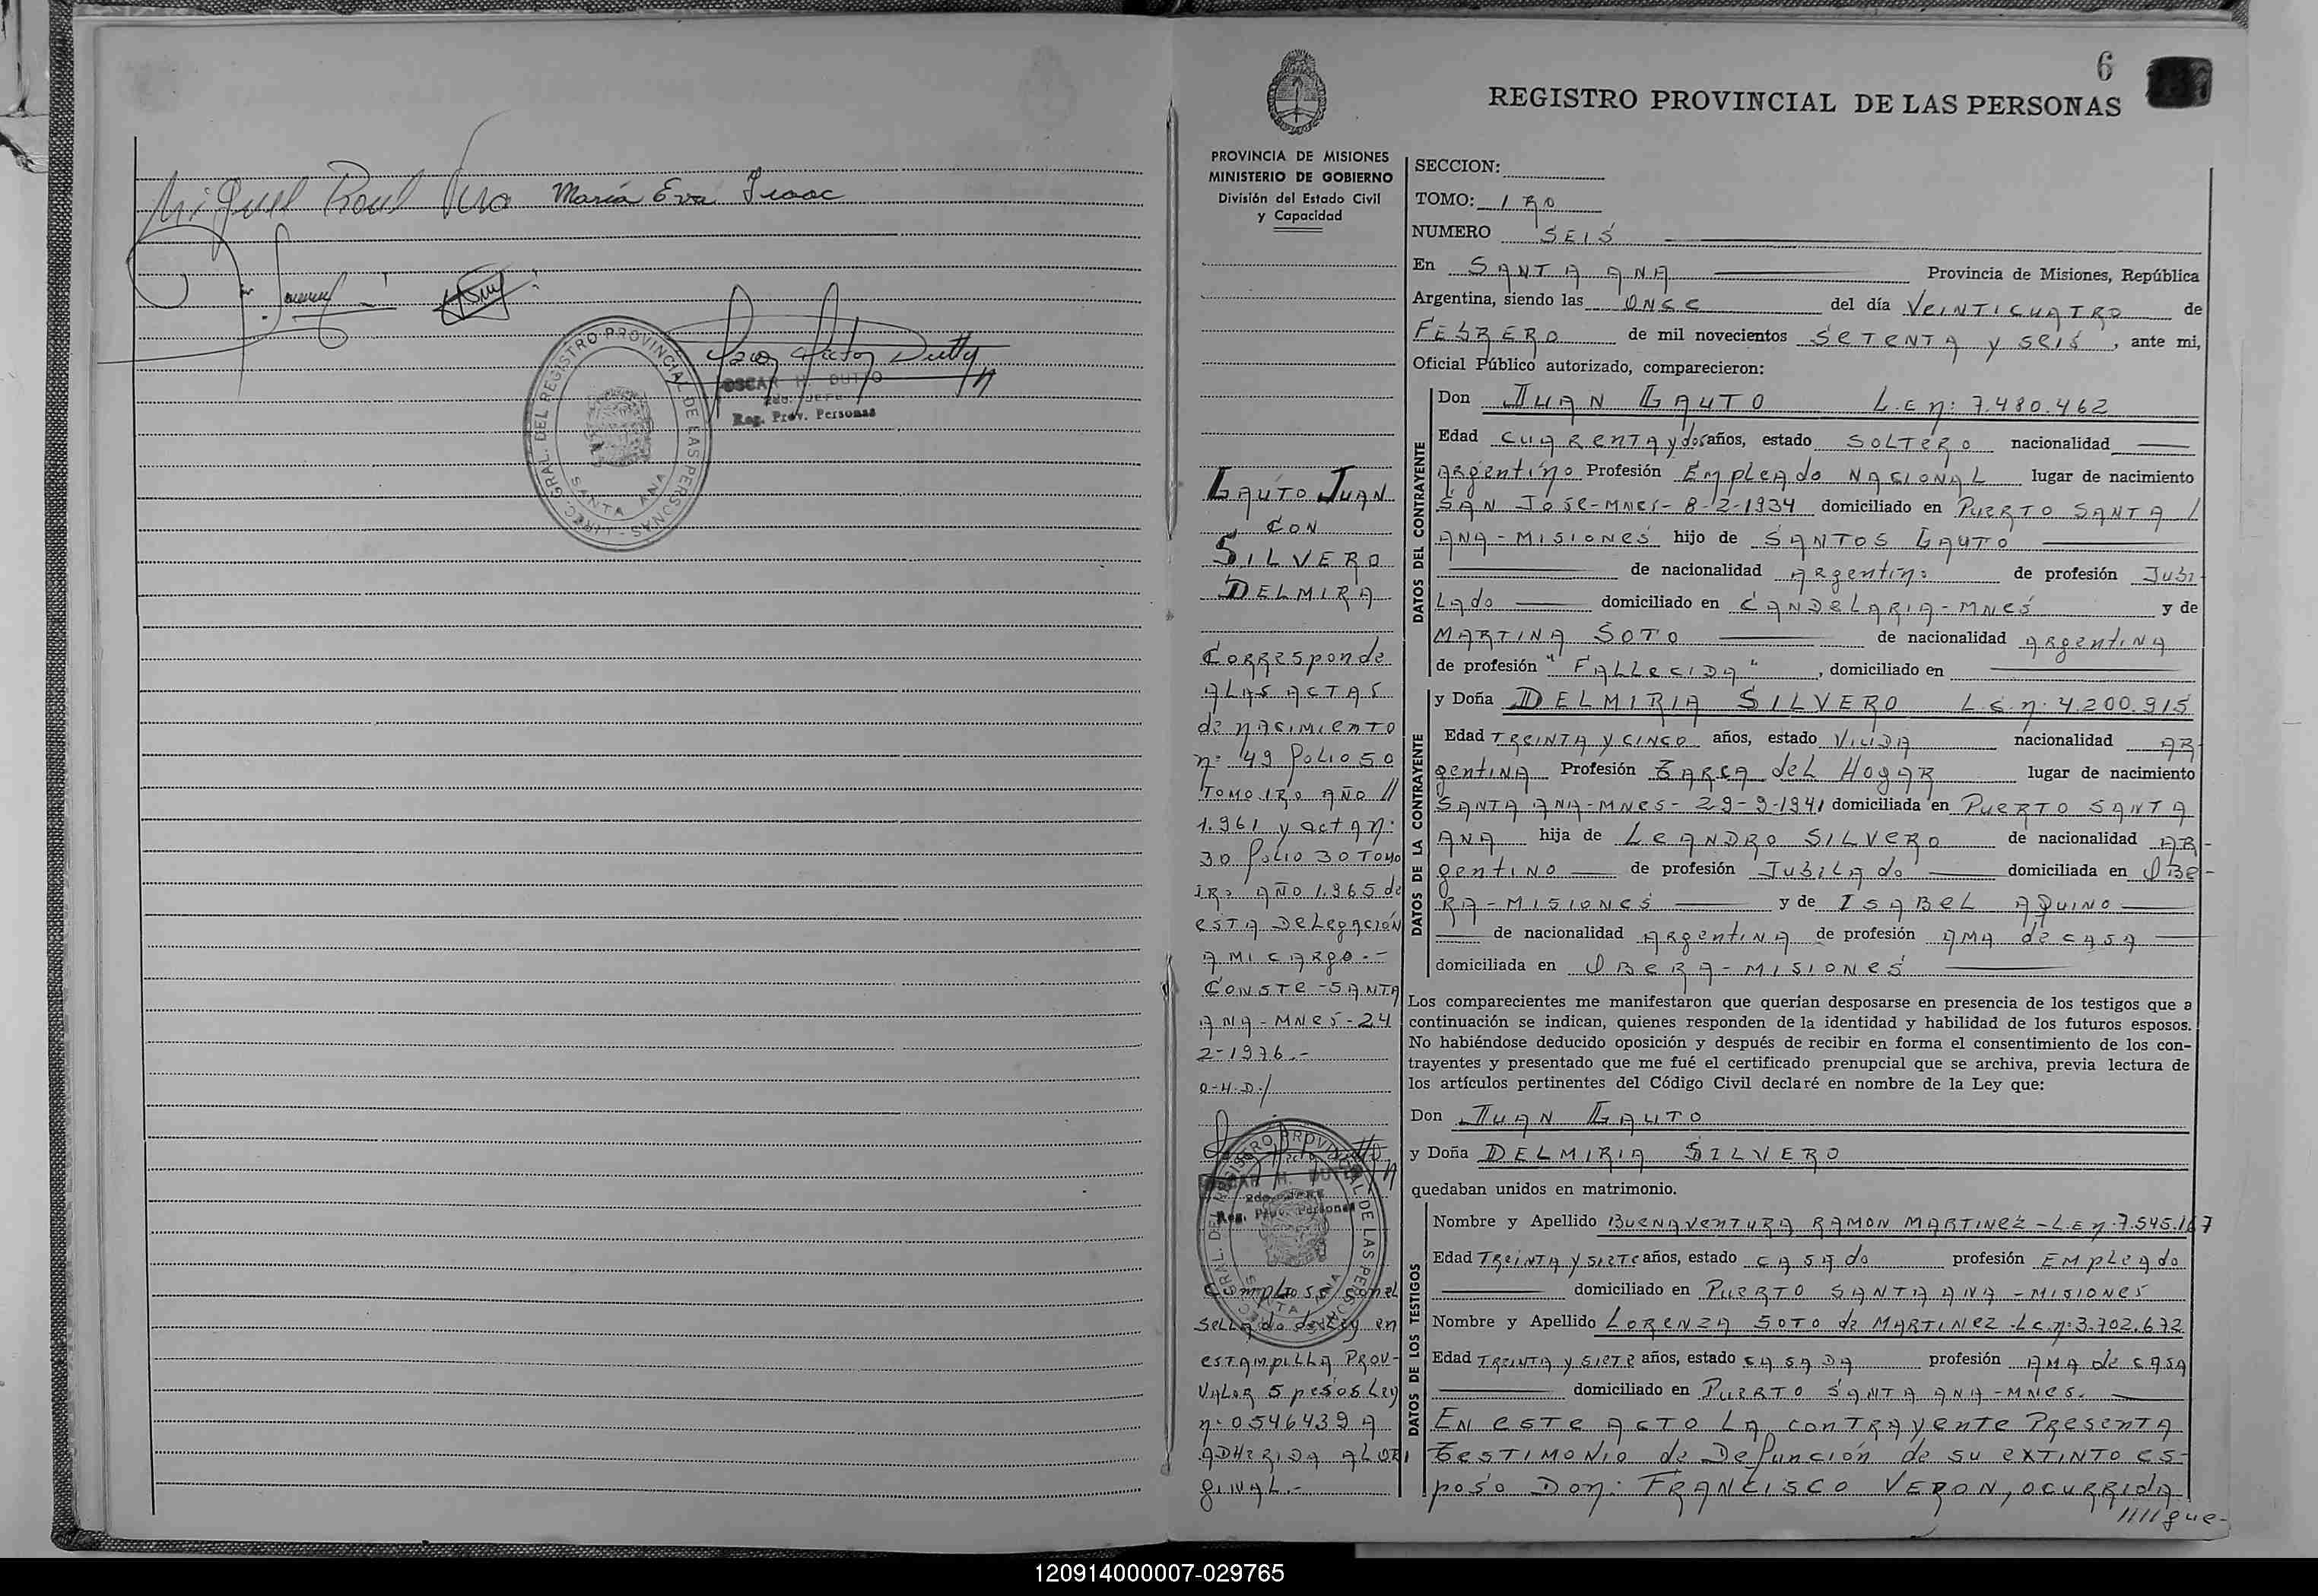 Miguel Raul Vera María Eva Isaac
OSCAR H. DUTTO
2do. JEFE
Reg. Prov. Personas
DIREC. GRAL. DEL REGISTRO PROVINCIAL DE LAS PERSONAS
SANTA ANA
6
REGISTRO PROVINCIAL DE LAS PERSONAS
PROVINCIA DE MISIONES
MINISTERIO DE GOBIERNO
División del Estado Civil
y Capacidad
GAUTO JUAN
CON
SILVERO
DELMIRA
CORRESPONDE
A LAS ACTAS
de NACIMIENTO
Nº 49 FOLIO 50
TOMO 1RO AÑO //
1.961 y ACTA Nº
30 FOLIO 30 TOMO
1Rº AÑO 1.965 de
ESTA DELEGACIÓN
A MI CARGO.-
CONSTE - SANTA
ANA - MNES - 24
2-1976.-
O-H-D./
OSCAR H. DUTTO
2do. JEFE
Reg. Prov. Personas
DIREC. GRAL. DEL REGISTRO PROVINCIAL DE LAS PERSONAS
SANTA ANA
SELLADO de Ley en
ESTAMPILLA PROV-
VALOR 5 pesos Ley
Nº 0546439 A
ADHERIDA AL ORI
GINAL.-
SECCION:
TOMO: 1 RO
NUMERO SEIS
En SANTA ANA Provincia de Misiones, República
Argentina, siendo las ONCE del día VEINTICUATRO de
FEBRERO de mil novecientos SETENTA y SEIS, ante mi,
Oficial Público autorizado, comparecieron:
DATOS DEL CONTRAYENTE
Don JUAN GAUTO L.E Nº 7.480.462
Edad CUARENTA y dos años, estado SOLTERO nacionalidad
ARGENTINO Profesión EMPLEADO NACIONAL lugar de nacimiento
SAN JOSE-MNES- 8-2-1934 domiciliado en PUERTO SANTA /
ANA - MISIONES hijo de SANTOS GAUTO
de nacionalidad ARGENTINO de profesión JUBI
LADO domiciliado en CANDELARIA - MNES y de
MARTINA SOTO de nacionalidad ARGENTINA
de profesión "FALLECIDA", domiciliado en
DATOS DE LA CONTRAYENTE
y Doña DELMIRIA SILVERO L.C. Nº 4.200.915
Edad TREINTA y CINCO años, estado VIUDA nacionalidad AR
GENTINA Profesión TAREA del HOGAR lugar de nacimiento
SANTA ANA-MNES- 29-9-1941 domiciliada en PUERTO SANTA
ANA hija de LEANDRO SILVERO de nacionalidad AR-
GENTINO de profesión JUBILADO domiciliada en OBE-
RA - MISIONES y de ISABEL AQUINO
de nacionalidad ARGENTINA de profesión AMA de CASA
domiciliada en OBERA - MISIONES
Los comparecientes me manifestaron que querían desposarse en presencia de los testigos que a
continuación se indican, quienes responden de la identidad y habilidad de los futuros esposos.
No habiéndose deducido oposición y después de recibir en forma el consentimiento de los con-
trayentes y presentado que me fué el certificado prenupcial que se archiva, previa lectura de
los artículos pertinentes del Código Civil declaré en nombre de la Ley que:
Don JUAN GAUTO
y Doña DELMIRIA SILVERO
quedaban unidos en matrimonio.
DATOS DE LOS TESTIGOS
Nombre y Apellido BUENAVENTURA RAMON MARTINEZ - L.E Nº 7.545.167
Edad TREINTA y SIETE años, estado CASADO profesión EMPLEADO
domiciliado en PUERTO SANTA ANA - MISIONES
Nombre y Apellido LORENZA SOTO de MARTINEZ - LC. Nº 3.702.672
Edad TREINTA y SIETE años, estado CASADA profesión AMA de CASA
domiciliado en PUERTO SANTA ANA - MNES.
EN ESTE ACTO LA CONTRAYENTE PRESENTA
TESTIMONIO de DEFUNCIÓN de su EXTINTO ES-
POSO DON: FRANCISCO VERON, OCURRIDA
////gue-
120914000007-029765